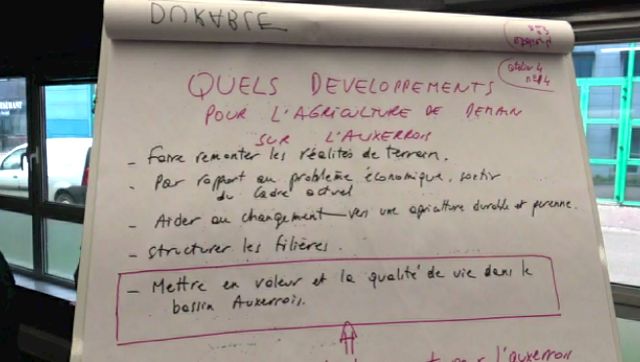 DURABLE
atelier 4
n°4
QUELS DEVELOPPEMENTS
POUR L'AGRICULTURE DE DEMAIN
SUR L'AUXERROIS
- Faire remonter les réalités de terrain.
- Par rapport au problème économique, sortir
du cadre actuel
- Aider au changement vers une agriculture durable et perenne.
- structurer les filières.
- Mettre en valeur et la qualité de vie dans le
bassin Auxerrois.
pour l'auxerrois